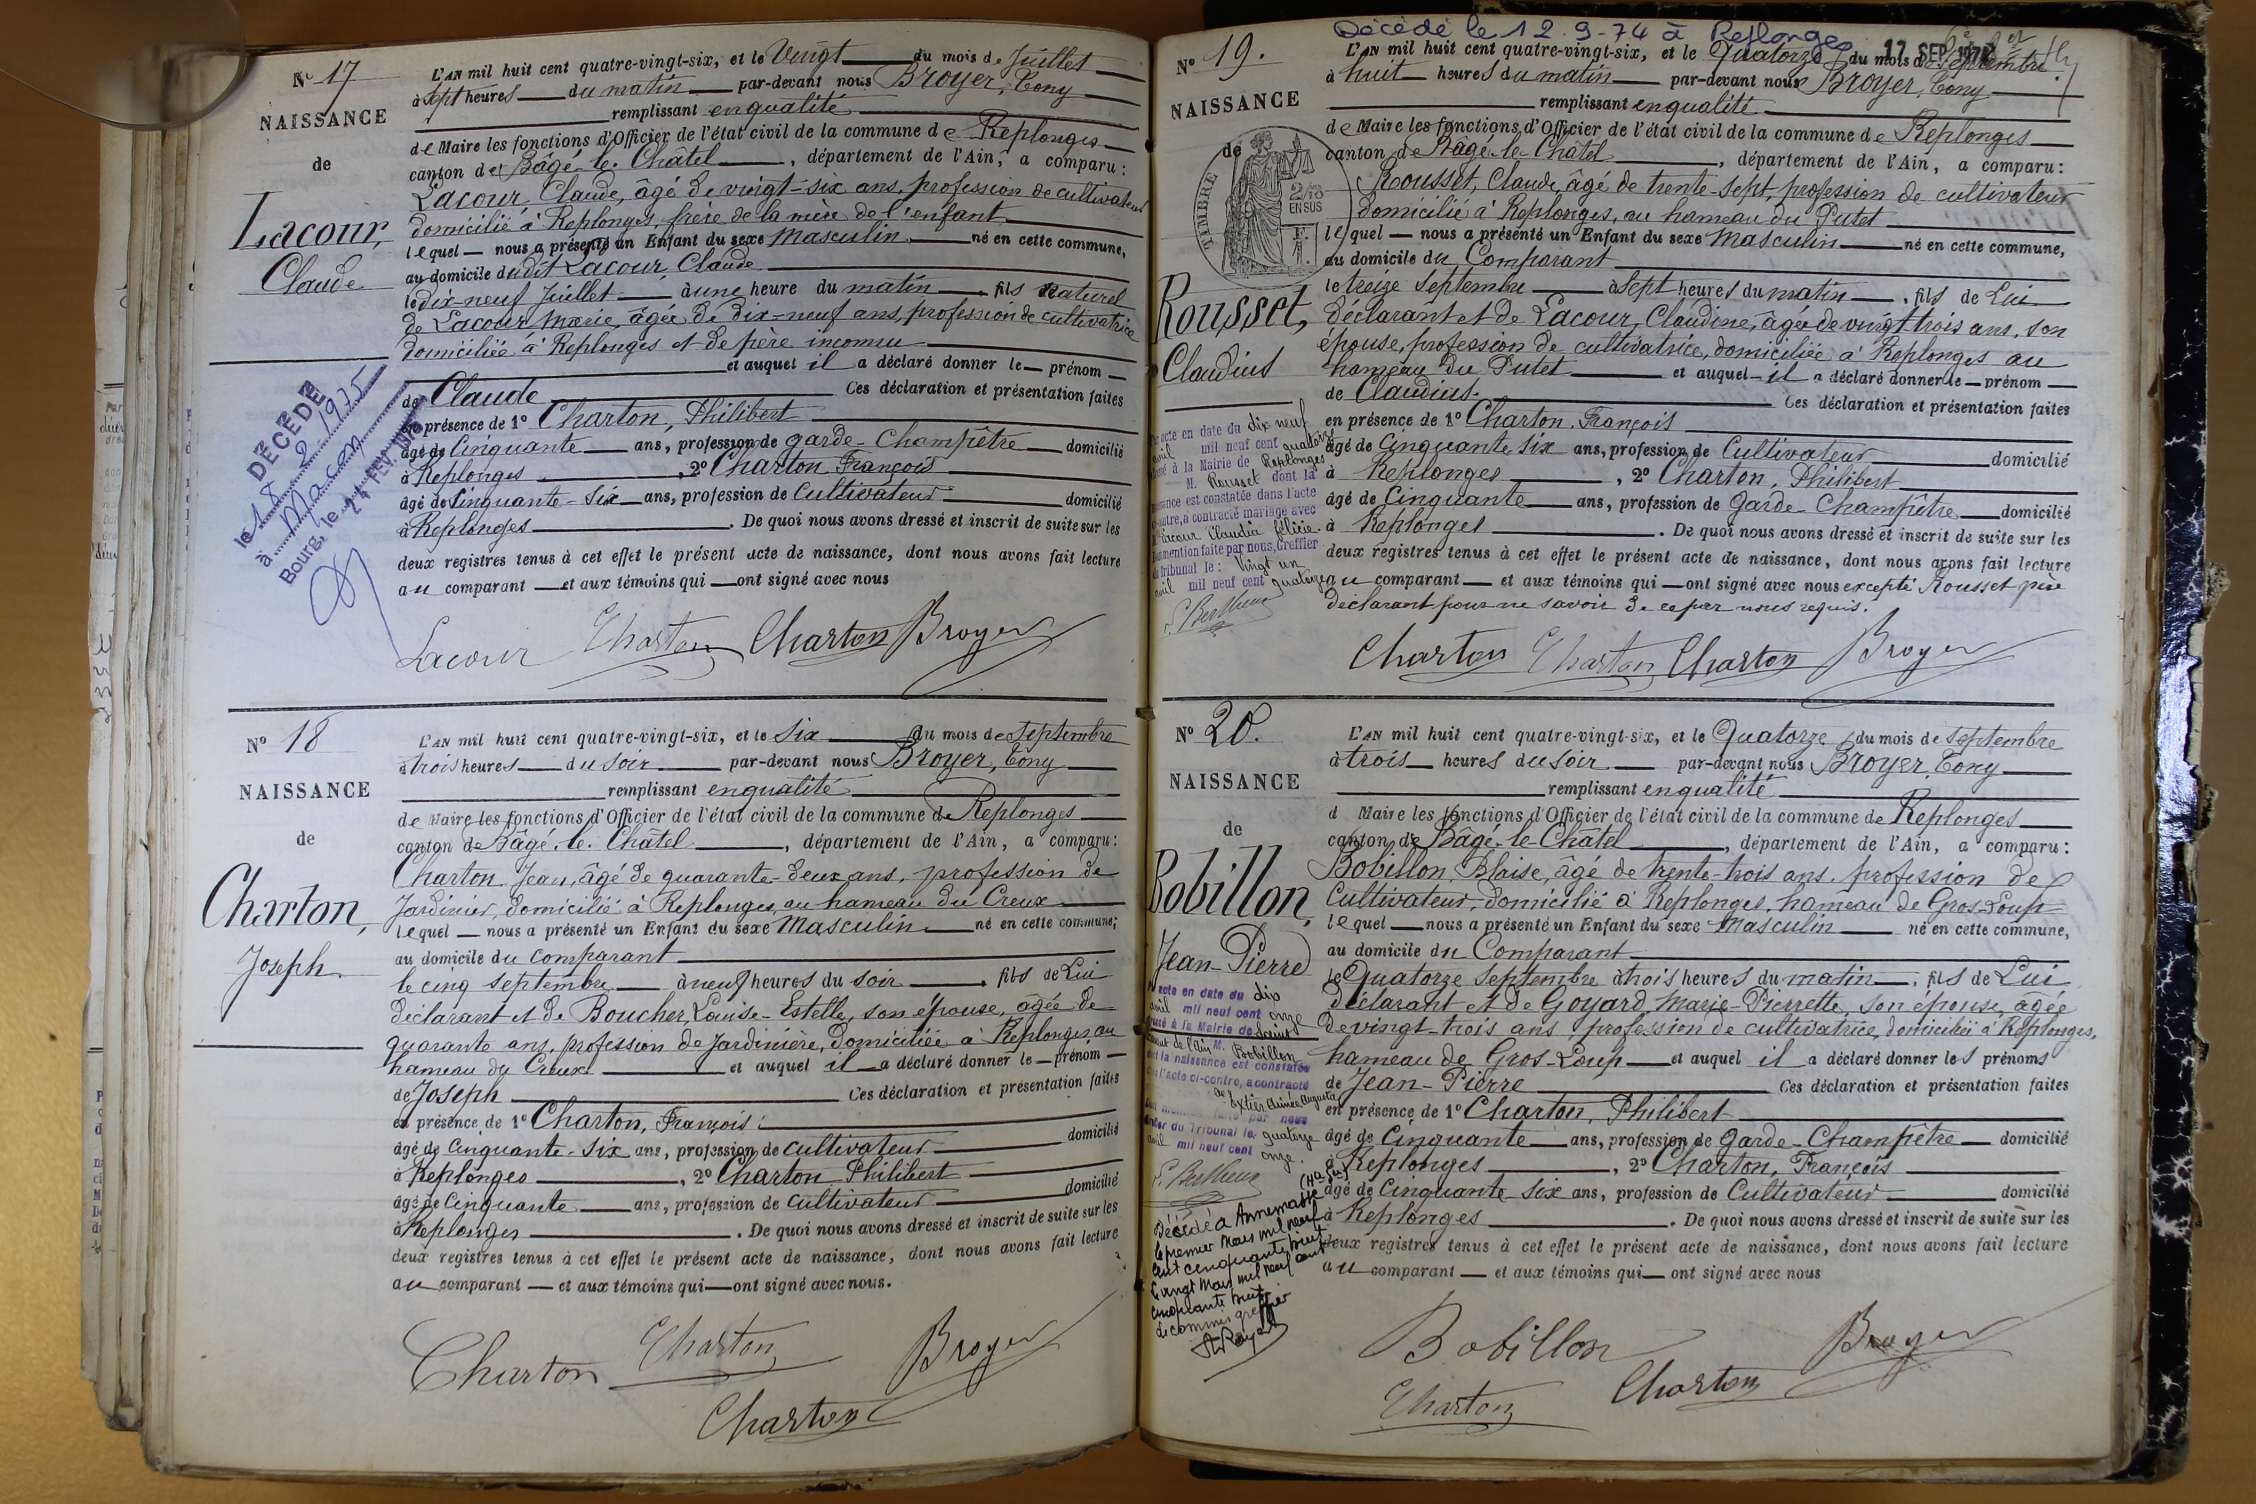 N° 17
NAISSANCE
de
Lacour,
Claude
DÉCÉDÉ
le 18 2 1975
à Macon
Bourg, le 24 FEV. 1975
L'AN mil huit cent quatre-vingt-six, et le Vingt du mois de Juillet
à sept heures du matin par-devant nous Broyer, Tony
remplissant en qualité
de Maire les fonctions d'Officier de l'état civil de la commune de Replonges
canton de Bâgé-le-Châtel, département de l'Ain, a comparu :
Lacour, Claude, âgé de vingt-six ans, profession de cultivateur
domicilié à Replonges, frère de la mère de l'enfant
lequel nous a présenté un Enfant du sexe Masculin né en cette commune,
au domicile dudit Lacour, Claude
le dix-neuf Juillet à une heure du matin, fils naturel
de Lacour Marie, âgée de dix-neuf ans, profession de cultivatrice
domiciliée à Replonges et de père inconnu
et auquel il a déclaré donner le prénom
de Claude Ces déclaration et présentation faites
en présence de 1° Charton, Philibert
âgé de Cinquante ans, profession de garde-Champêtre domicilié
à Replonges, 2° Charton François
âgé de Cinquante-six ans, profession de Cultivateur domicilié
à Replonges. De quoi nous avons dressé et inscrit de suite sur les
deux registres tenus à cet effet le présent acte de naissance, dont nous avons fait lecture
au comparant et aux témoins qui ont signé avec nous
Lacour Charton Charton Broyer
N° 18
NAISSANCE
de
Charton,
Joseph.
L'AN mil huit cent quatre-vingt-six, et le six du mois de septembre
à trois heures du soir par-devant nous Broyer, Tony
remplissant en qualité
de Maire les fonctions d'Officier de l'état civil de la commune de Replonges
canton de Bâgé-le-Châtel, département de l'Ain, a comparu :
Charton Jean, âgé de quarante-deux ans, profession de
Jardinier, domicilié à Replonges, au hameau du Creux
lequel nous a présenté un Enfant du sexe Masculin né en cette commune,
au domicile du comparant
le cinq septembre à neuf heures du soir, fils de Lui
déclarant et de Boucher, Louise-Estelle, son épouse, âgée de
quarante ans, profession de Jardinière, domiciliée à Replonges, au
hameau du Creux et auquel il a déclaré donner le prénom
de Joseph Ces déclaration et présentation faites
en présence de 1° Charton, François
âgé de Cinquante-six ans, profession de cultivateur domicilié
à Replonges, 2° Charton Philibert
âgé de Cinquante ans, profession de cultivateur domicilié
à Replonges. De quoi nous avons dressé et inscrit de suite sur les
deux registres tenus à cet effet le présent acte de naissance, dont nous avons fait lecture
au comparant et aux témoins qui ont signé avec nous.
Charton Charton Broyer
Charton
Décédé le 12.9-74 à Replonges
17 SEP. 197
N° 19.
NAISSANCE
de
TIMBRE
2/10
EN SUS
Rousset,
Claudius
acte en date du dix neuf
avril mil neuf cent quatorze
à la Mairie de Replonges
M. Rousset dont la
naissance est constatée dans l'acte
ci-contre, a contracté mariage avec
Lacour Claudia Félicie.
mention faite par nous, Greffier
du tribunal le : vingt un
avril mil neuf cent quatorze
Berthoux
L'AN mil huit cent quatre-vingt-six, et le Quatorze du mois de septembre
à huit heures du matin par-devant nous Broyer, Tony
remplissant en qualité
de Maire les fonctions d'Officier de l'état civil de la commune de Replonges
canton de Bâgé-le-Châtel, département de l'Ain, a comparu :
Rousset, Claude, âgé de trente-sept, profession de cultivateur
domicilié à Replonges, au hameau du Putet
lequel nous a présenté un Enfant du sexe Masculin né en cette commune,
au domicile du Comparant
le treize septembre à sept heures du matin, fils de Lui
déclarant et de Lacour, Claudine, âgée de vingt-trois ans, son
épouse, profession de cultivatrice, domiciliée à Replonges au
hameau du Putet et auquel il a déclaré donner le prénom
de Claudius. Ces déclaration et présentation faites
en présence de 1° Charton, François
âgé de Cinquante six ans, profession de Cultivateur domicilié
à Replonges, 2° Charton, Philibert
âgé de Cinquante ans, profession de Garde-Champêtre domicilié
à Replonges. De quoi nous avons dressé et inscrit de suite sur les
deux registres tenus à cet effet le présent acte de naissance, dont nous avons fait lecture
au comparant et aux témoins qui ont signé avec nous excepté Rousset père
déclarant pour ne savoir de ce par nous requis.
Charton Charton Charton Broyer
N° 20.
NAISSANCE
de
Bobillon,
Jean-Pierre
acte en date du dix
avril mil neuf cent onze
à la Mairie de Saint
M. Bobillon
dont la naissance est constatée
dans l'acte ci-contre, a contracté
Augusta
mention faite par nous
Greffier du Tribunal le quatorze
avril mil neuf cent onze.
Berthoux
Décédé à Annemasse
le premier Mars mil neuf
cent cinquante huit
le vingt Mars mil neuf cent
cinquante huit
le commis greffier
L'AN mil huit cent quatre-vingt-six, et le Quatorze du mois de septembre
à trois heures du soir par-devant nous Broyer, Tony
remplissant en qualité
d Maire les fonctions d'Officier de l'état civil de la commune de Replonges
canton de Bâgé-le-Châtel, département de l'Ain, a comparu :
Bobillon, Blaise, âgé de trente-trois ans, profession de
Cultivateur, domicilié à Replonges, hameau de Gros-Loup
lequel nous a présenté un Enfant du sexe Masculin né en cette commune,
au domicile du Comparant
le Quatorze septembre à trois heures du matin, fils de Lui
déclarant et de Goyard Marie-Pierrette, son épouse, âgée
de vingt-trois ans, profession de cultivatrice, domiciliée à Replonges,
hameau de Gros-Loup et auquel il a déclaré donner les prénoms
de Jean-Pierre Ces déclaration et présentation faites
en présence de 1° Charton, Philibert
âgé de Cinquante ans, profession de Garde-Champêtre domicilié
à Replonges, 2° Charton, François
âgé de Cinquante six ans, profession de Cultivateur domicilié
à Replonges. De quoi nous avons dressé et inscrit de suite sur les
deux registres tenus à cet effet le présent acte de naissance, dont nous avons fait lecture
au comparant et aux témoins qui ont signé avec nous
Bobillon Broyer
Charton Charton